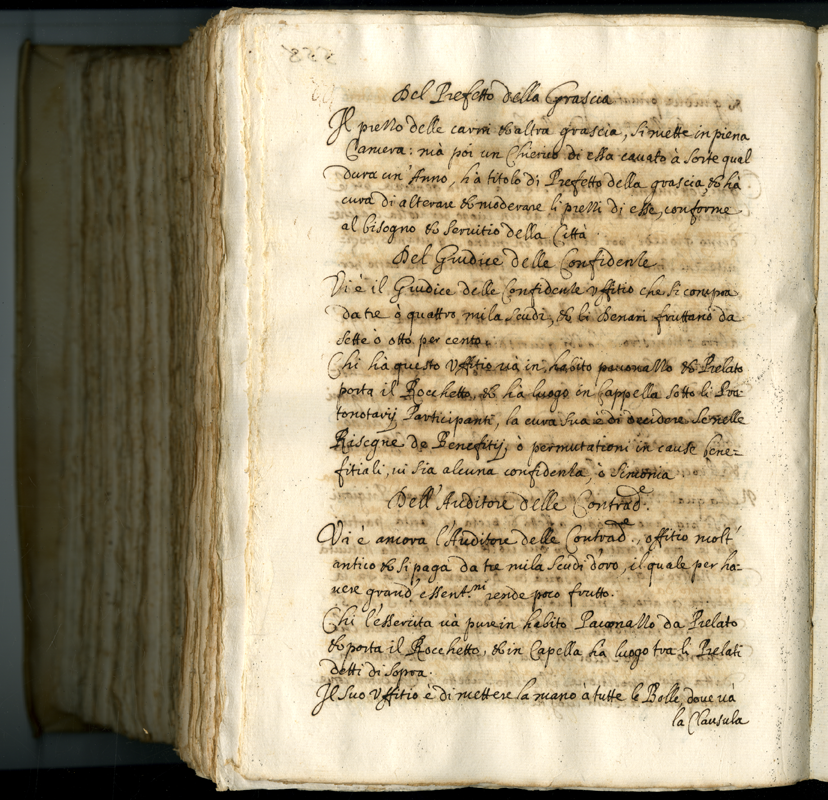 Del Prefetto della Grascia
Il prezzo delle carni et altra grascia, si mette in piena
Camera: mà poi un Chierico di essa cavato à sorte qual
dura un' Anno, hà titolo di Prefetto della grascia et hà
cura di alterare et moderare li prezzi di esse, conforme
al bisogno et servitio della Città
Del Giudice delle Confidenze
Vi è il Giudice delle Confidenze uffitio che si compra
da tre ò quattro mila scudi, et li denari fruttano da
sette ò otto per cento.
Chi hà questo Uffitio và in habito pavonazzo et Prelato
porta il Rocchetto, et hà luogo in Cappella sotto li Pro=
tonotarij Participanti, la cura sua è di decidere se nelle
Risegne de Benefitij, ò permutationi in cause bene=
fitiali, vi sia alcuna confidenza, ò simonia
Dell' Auditore delle Contrad.e
Vi è ancora l'Auditore delle Contrad.e, offitio molt'
antico et si paga da tre mila scudi d'oro, il quale per ha=
vere grand' essent.ni rende poco frutto.
Chi l'essercita và pure in habito Pavonazzo da Prelato
et porta il Rocchetto, et in Capella ha luogo tra li Prelati
detti di sopra.
Il suo Uffitio è di mettere la mano à tutte le Bolle, dove và
la Clausula